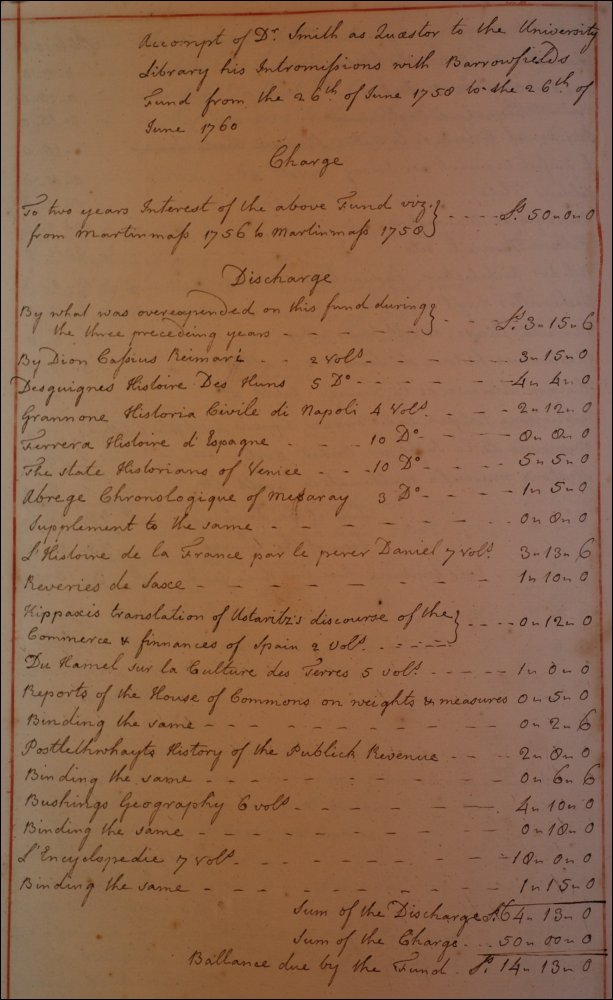 Accompt of Dr. Smith as Quæstor to the University
Library his Intromissions with Barrowfields
Fund from the 26th of June 1758 to the 26th of
June 1760
Charge
To two years Interest of the above Fund viz. } - - - - £. 50 „ 0 „ 0
from Martinmass 1756 to Martinmass 1758 }
Discharge
By what was overexpended on this fund during } - - - £. 3 „ 15 „ 6
the three preceeding years - - - - }
By Dion Cassius Reimari - - 2 Vols. - - - - 3 „ 15 „ 0
Desguignes Histoire Des Huns 5 Do - - - - - 4 „ 4 „ 0
Grannone Historia Civile di Napoli 4 Vols. - - - 2 „ 12 „ 0
Ferrera Histoire d'Espagne - - - - 10 Do - - - 8 „ 8 „ 0
The state Historians of Venice - - - 10 Do - - - 5 „ 5 „ 0
Abrege Chronologique of Mezaray 3 Do - - - 1 „ 5 „ 0
Supplement to the same - - - - - - - - 0 „ 8 „ 0
L'Histoire de la France par le perer Daniel 7 vols. 3 „ 13 „ 6
Reveries de Saxe - - - - - - - - - 1 „ 10 „ 0
Hippaxis translation of Ustaritz's discourse of the } - - - - 0 „ 12 „ 0
Commerce & finnances of Spain 2 Vols. - - - - }
Du Hamel sur la Culture des Terres 5 vols. - - - - 1 „ 0 „ 0
Reports of the House of Commons on weights & measures 0 „ 5 „ 0
Binding the same - - - - - - - - - 0 „ 2 „ 6
Postlethwhayts History of the Publick Revenue - - - 2 „ 8 „ 0
Binding the same - - - - - - - - - 0 „ 6 „ 6
Bushings Geography 6 vols. - - - - - - - 4 „ 10 „ 0
Binding the same - - - - - - - - - 0 „ 18 „ 0
L'Encyclopedie 7 Vols. - - - - - - - - 18 „ 0 „ 0
Binding the same - - - - - - - - - 1 „ 15 „ 0
Sum of the Discharge £. 64 „ 13 „ 0
Sum of the Charge - - - 50 „ 00 „ 0
Ballance due by the Fund. £. 14 „ 13 „ 0